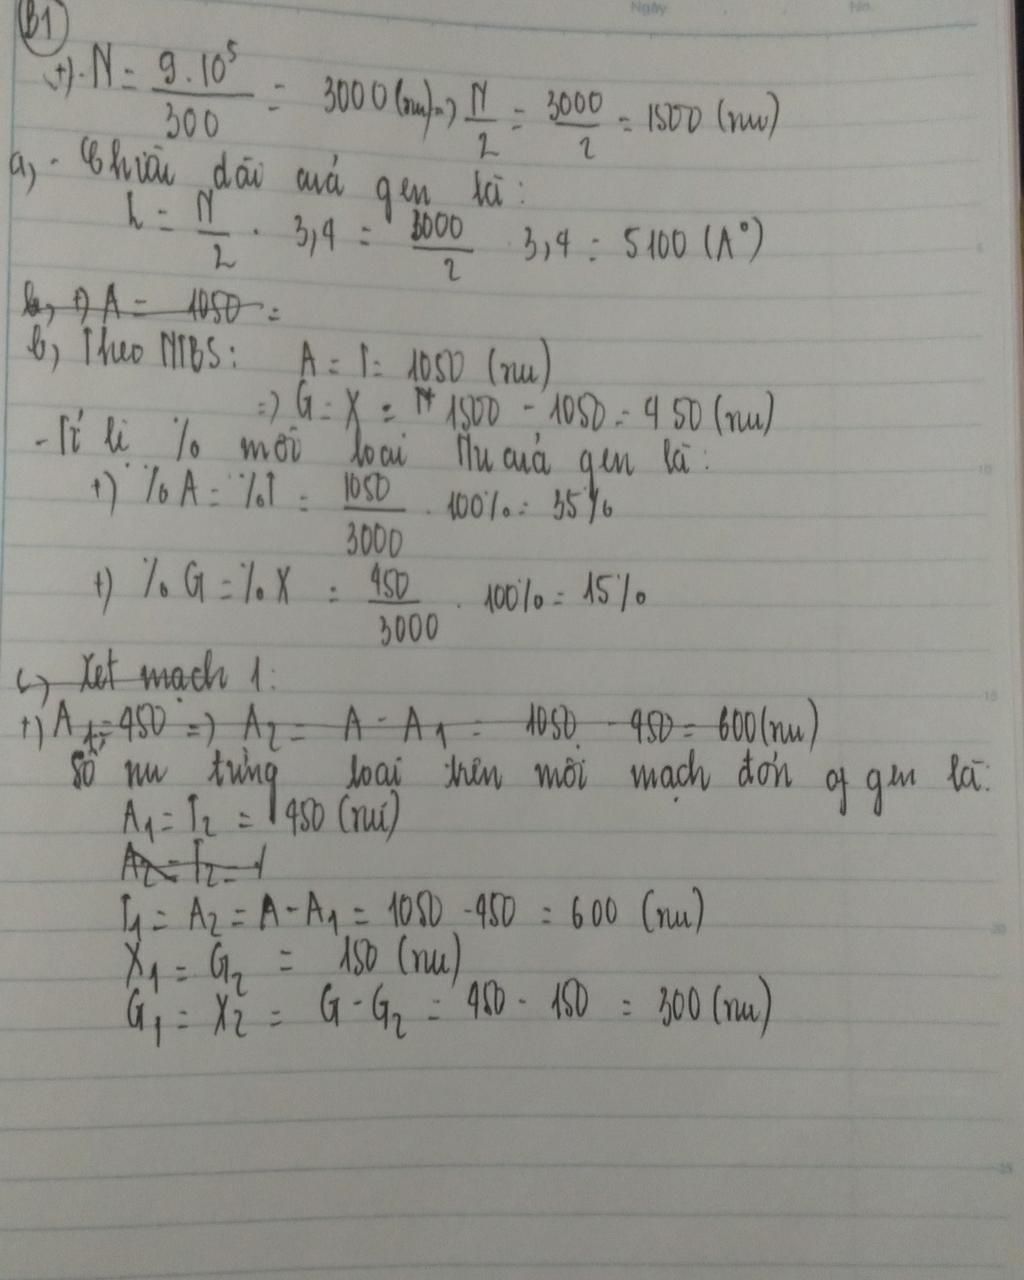 Ngày No.
B1
+). N = 9.10⁵/300 = 3000 (nu) => N/2 = 3000/2 = 1500 (nu)
a, - Chiều dài của gen là:
L = N/2 . 3,4 = 3000/2 . 3,4 = 5100 (A°)
b, +) A = 1050 =
b, Theo NTBS: A = T = 1050 (nu)
=> G = X = N 1500 - 1050 = 450 (nu)
- Tỉ lệ % mỗi loại Nu của gen là:
+) %A = %T = 1050/3000 . 100% = 35%
+) %G = %X = 450/3000 . 100% = 15%
c, Xét mạch 1:
+) A₁ = 450 => A₂ = A - A₁ = 1050 - 450 = 600 (nu)
Số nu từng loại trên mỗi mạch đơn of gen là:
A₁ = T₂ = 450 (nu)
A₂ = T₂ = 1
T₁ = A₂ = A - A₁ = 1050 - 450 = 600 (nu)
X₁ = G₂ = 150 (nu)
G₁ = X₂ = G - G₂ = 450 - 150 = 300 (nu)